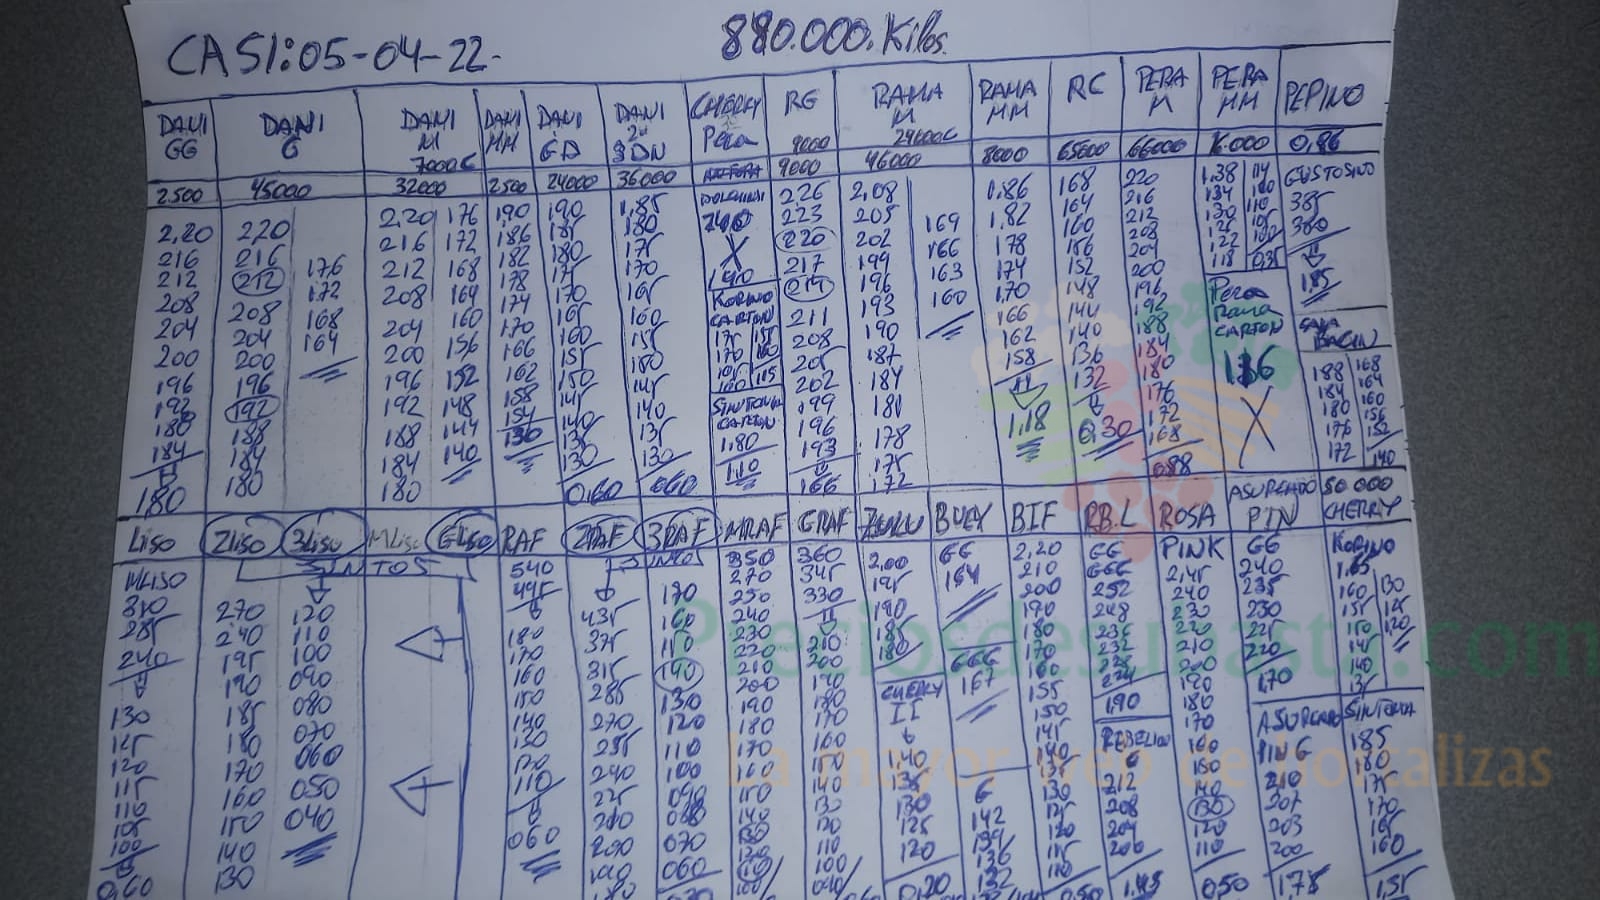 CASI: 05-04-22.
880.000. Kilos.
DANI GG
DANI G
DANI M 7000C
DANI MM
DANI GD
CHERRY Pera
RG 9000
RAMA M
RAMA MM
RC
PERA M
PERA MM
PEPINO
2.500
45000
32000
2.500
24000
36000
9000
46000
8000
65000
66000
16.000
0,86
2,20
216
212
208
204
200
196
192
188
184
180
220
216
212
208
204
200
196
192
188
184
180
176
172
168
164
2,20
216
212
208
204
200
196
192
188
184
180
176
172
168
164
160
156
152
148
144
140
190
186
182
178
174
170
166
162
158
154
130
190
185
180
175
170
165
160
155
150
145
140
135
130
0,60
1,85
180
175
170
165
160
155
150
145
140
135
130
060
KORINO CARTON
SINTONIA CARTON
1.80
1.10
226
223
220
217
214
211
208
205
202
199
196
193
166
2,08
205
202
199
196
193
190
187
184
181
178
175
172
169
166
163
160
1,86
1,82
178
174
170
166
162
158
1,18
168
164
160
156
152
148
144
140
136
132
0,30
220
216
212
208
204
200
196
192
188
184
180
176
172
168
0,88
1.38
134
130
126
122
118
Pera Rama CARTON
136
GUSTOSINO
385
380
1,85
188
184
180
176
172
168
164
160
156
152
140
LISO
2LISO
3LISO
MLISO
GLISO
RAF
2RAF
3RAF
MRAF
GRAF
ZULU
BUEY
BIF
RB.L
ROSA
ASURCADO PIN
50.000 CHERRY
SINTOS
MLISO
310
285
240
130
125
120
115
110
105
100
0,60
270
240
195
190
185
180
170
160
150
140
130
120
110
100
090
080
070
060
050
040
540
495
180
170
160
150
140
130
120
110
060
435
375
315
285
270
255
240
225
210
200
190
180
170
160
150
140
130
120
110
100
090
080
070
060
350
270
250
240
230
220
210
200
190
180
170
160
150
140
130
120
110
100
360
345
330
210
200
190
180
170
160
150
140
130
120
110
100
2,00
195
190
185
180
CHERRY II
1,40
135
130
125
120
0,20
GG
164
GGG
167
G
142
139
136
132
2,20
210
200
190
180
170
160
155
150
145
140
135
130
125
120
115
110
GG
GGG
252
248
236
232
228
224
190
REBELION
G
212
208
204
200
1.45
PINK
2,45
240
230
220
210
200
190
180
170
160
150
140
130
120
110
0,50
GG
240
235
230
225
220
1,70
ASURCADO PIN G
210
207
203
200
1.78
KORINO
1.65
160
155
150
145
140
135
130
125
120
SINTONIA
185
180
175
170
165
160
1,55
Preciosdesubasta.com
La mayor web de hortalizas